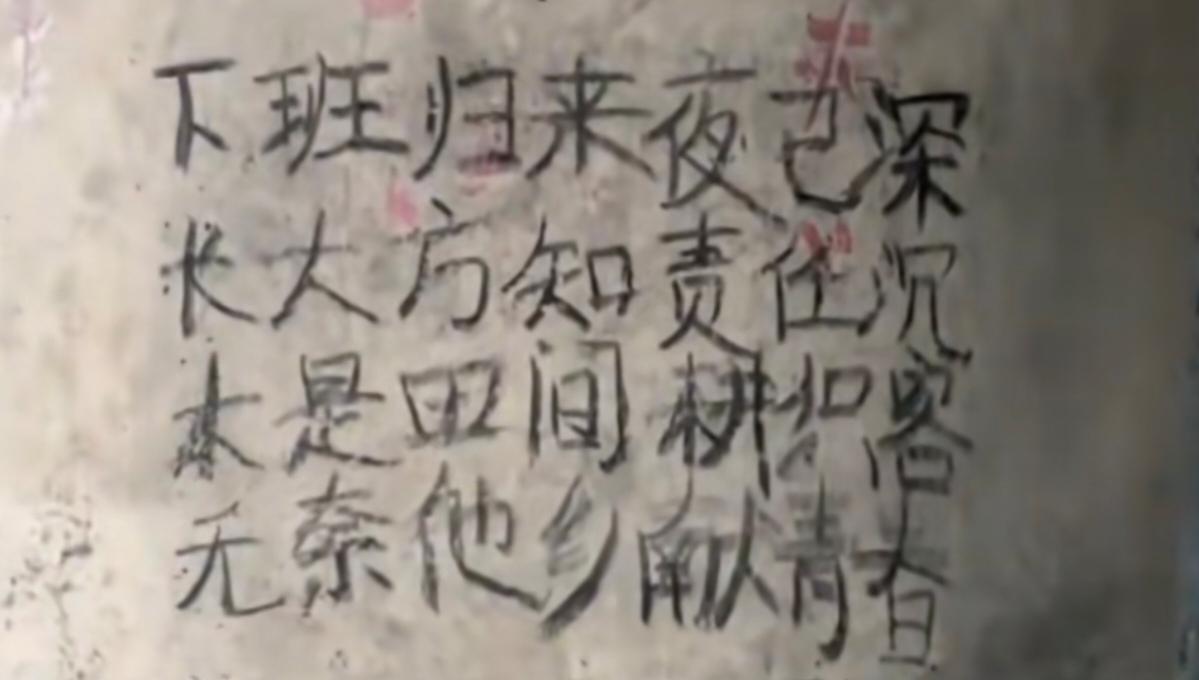 下班归来夜已深
长大方知责任沉
本是田间耕种客
无奈他乡献青春